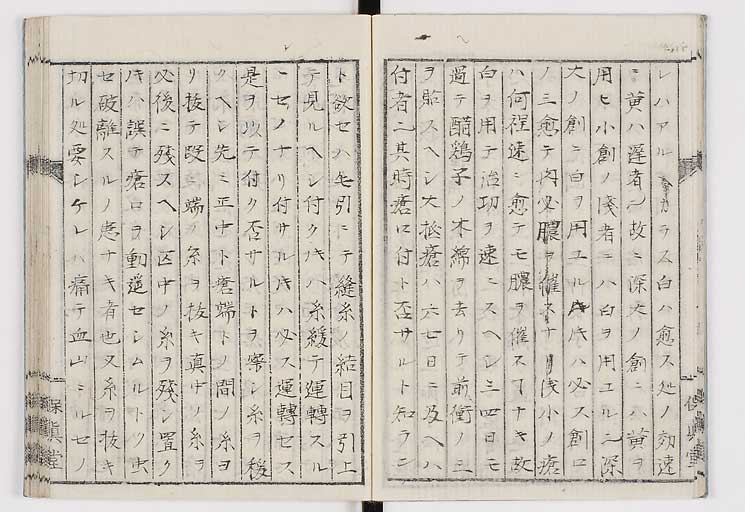 レハアルヘカラス白ハ愈ス処ノ効速
ニ黄ハ遅者也故ニ深大ノ創ニハ黄ヲ
用ヒ小創ノ浅者ニハ白ヲ用エル也深
大ノ創ニ白ヲ用エルキハ必ス創口
ノ三愈テ内必膿ヲ催スナリ浅小ノ瘡
ハ何程速ニ愈テモ膿ヲ催スヿナキ故
白ヲ用テ治功ヲ速ニスヘシ三四日モ
過テ醋鶏子ノ木綿ヲ去リテ前衝ノ三
ヲ貼スヘシ大抵瘡ハ六七日ニ及ヘハ
付者也其時瘡口付ト否サルト知ラン
ト欲セハ先引ニテ縫糸ノ結目ヲ引上
テ見ルヘシ付クキハ糸緩テ運轉スル
ニセノナリ付サルキハ必ス運轉セス
是ヲ以テ付ク否サルトヲ察シ糸ヲ稜
クヘシ先ミ正中ト瘡端トノ間ノ糸ヨ
リ抜テ段端ノ糸ヲ抜キ真中ノ糸ヲ
必後ニ残スヘシ正中ノ糸ヲ残シ置ク
キハ誤テ瘡口ヲ動遥セシムルトツ虫
セ破離スルノ患サキ者也又糸ヲ抜キ
切ル処要シケレハ痛テ血出ニルセノ
保眞堂